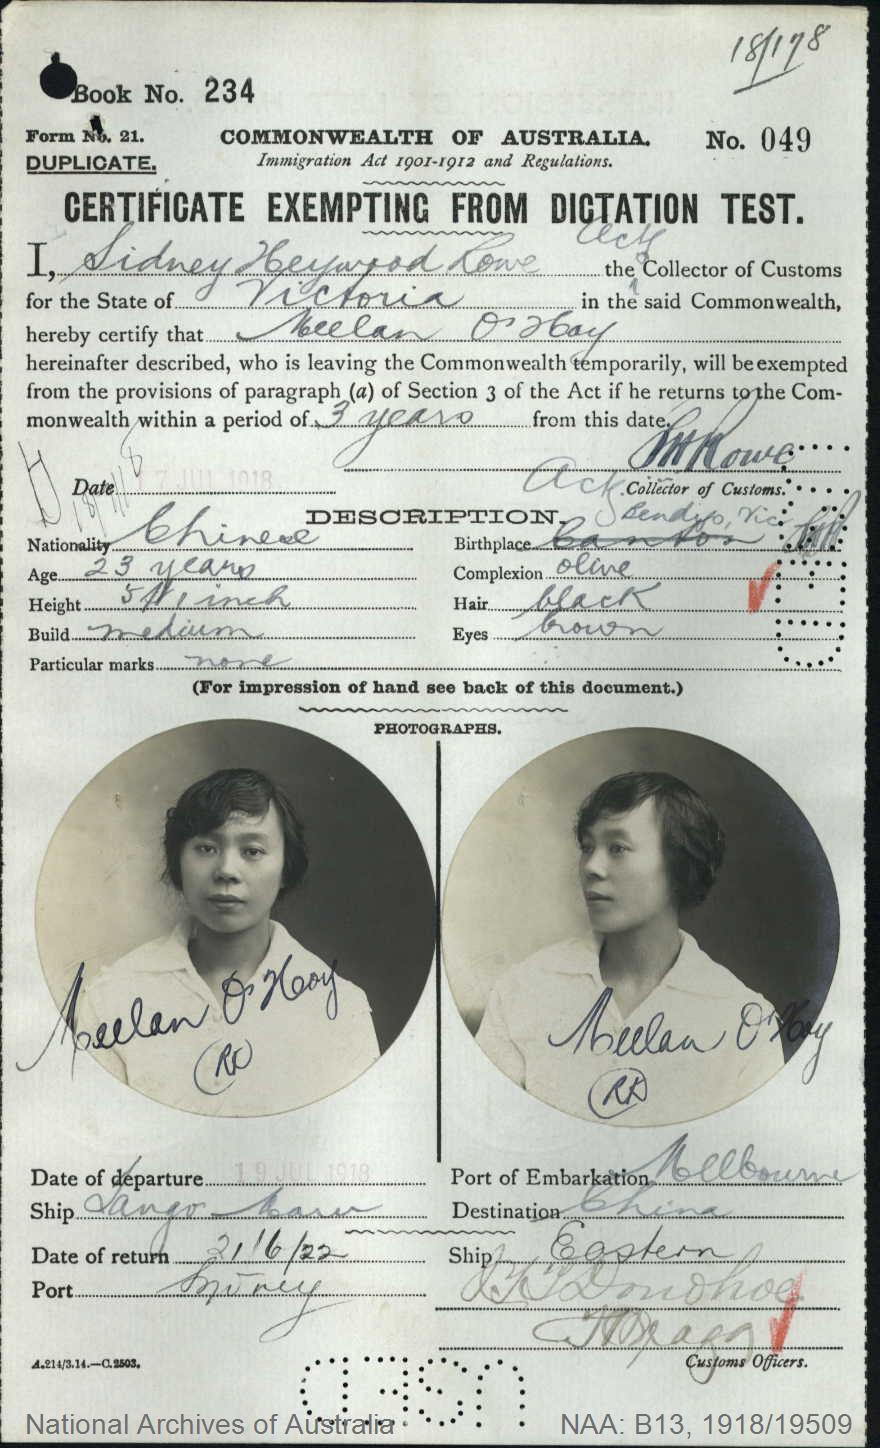 18/178
Book No. 234
Form No. 21.
COMMONWEALTH OF AUSTRALIA.
No. 049
DUPLICATE.
Immigration Act 1901-1912 and Regulations.
CERTIFICATE EXEMPTING FROM DICTATION TEST.
I, Sidney Heywood Lowe the Actg Collector of Customs
for the State of Victoria in the said Commonwealth,
hereby certify that Meelan O'Hoy
hereinafter described, who is leaving the Commonwealth temporarily, will be exempted
from the provisions of paragraph (a) of Section 3 of the Act if he returns to the Com-
monwealth within a period of 3 years from this date.
Date 17 JUL 1918
Actg Collector of Customs.
DESCRIPTION.
Nationality Chinese
Birthplace Canton Bendigo, Vic
Age 23 years
Complexion olive
Height 5ft 1 inch
Hair black
Build medium
Eyes brown
Particular marks none
(For impression of hand see back of this document.)
PHOTOGRAPHS.
Meelan O'Hoy
Meelan O'Hoy
Date of departure 19 JUL 1918
Port of Embarkation Melbourne
Ship Tango Maru
Destination China
Date of return 21/6/22
Ship Eastern
Port Sydney
Donohoe
A.214/3.14.—C.2503.
Customs Officers.
National Archives of Australia
NAA: B13, 1918/19509